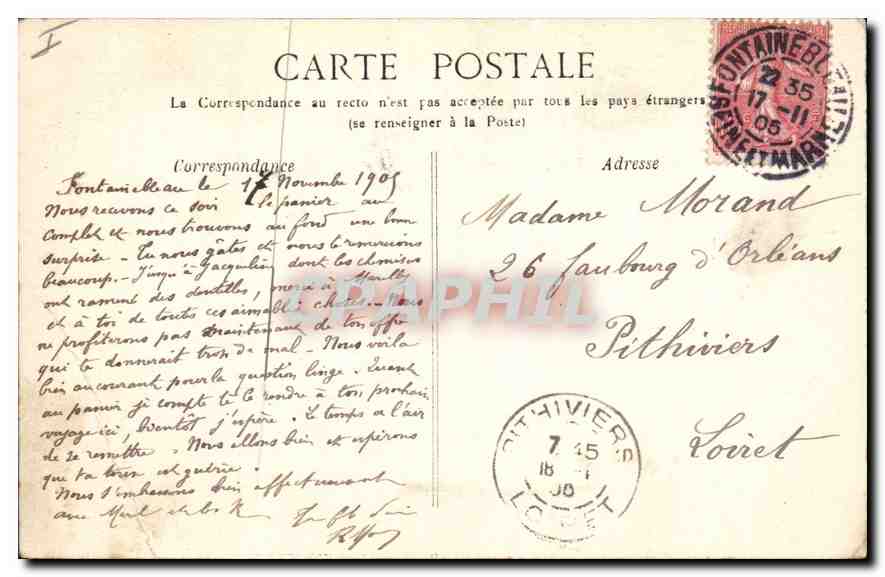 I
CARTE POSTALE
La Correspondance au recto n'est pas acceptée par tous les pays étrangers
(se renseigner à la Poste)
Correspondance
Fontainebleau le 17 Novembre 1905
Nous recevons ce soir le panier au
complet et nous trouvons au fond une bonne
surprise. - Tu nous gâtes et nous te remercions
beaucoup. - Jusqu'à Jacqueline dont les chemises
ont rament des dentelles, merci à
et à toi de toutes ces aimables choses. - Nous
ne profiterons pas maintenant de ton offre
qui te donnerait trop de mal - Nous voila
bien au courant pour la question linge. Quant
au panier je compte te le rendre à ton prochain
voyage ici, bientôt j'espère. Le temps a l'air
de se remettre. Nous allons bien et espérons
que ta toux est guérie.
Nous t'embrassons bien affectueusement
avec
Adresse
Madame Morand
26 faubourg d'Orléans
Pithiviers
Loiret
FONTAINEBLEAU
22 35
17 -11
05
SEINE ET MARNE
PITHIVIERS
7 45
18
LOIRET
CPAPHIL